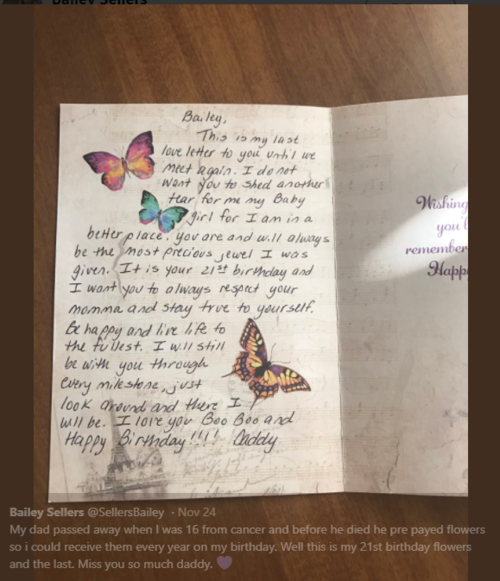 Bailey Sellers
Bailey,
This is my last
love letter to you until we
meet again. I do not
want you to shed another
tear for me my Baby
girl for I am in a
better place. you are and will always
be the most precious jewel I was
given. It is your 21st birthday and
I want you to always respect your
momma and stay true to yourself.
Be happy and live life to
the fullest. I will still
be with you through
every milestone, just
look around and there I
will be. I love you Boo Boo and
Happy Birthday!!!! Daddy
Wishing
you
remember
Happ
Bailey Sellers @SellersBailey · Nov 24
My dad passed away when I was 16 from cancer and before he died he pre payed flowers
so i could receive them every year on my birthday. Well this is my 21st birthday flowers
and the last. Miss you so much daddy. 💜